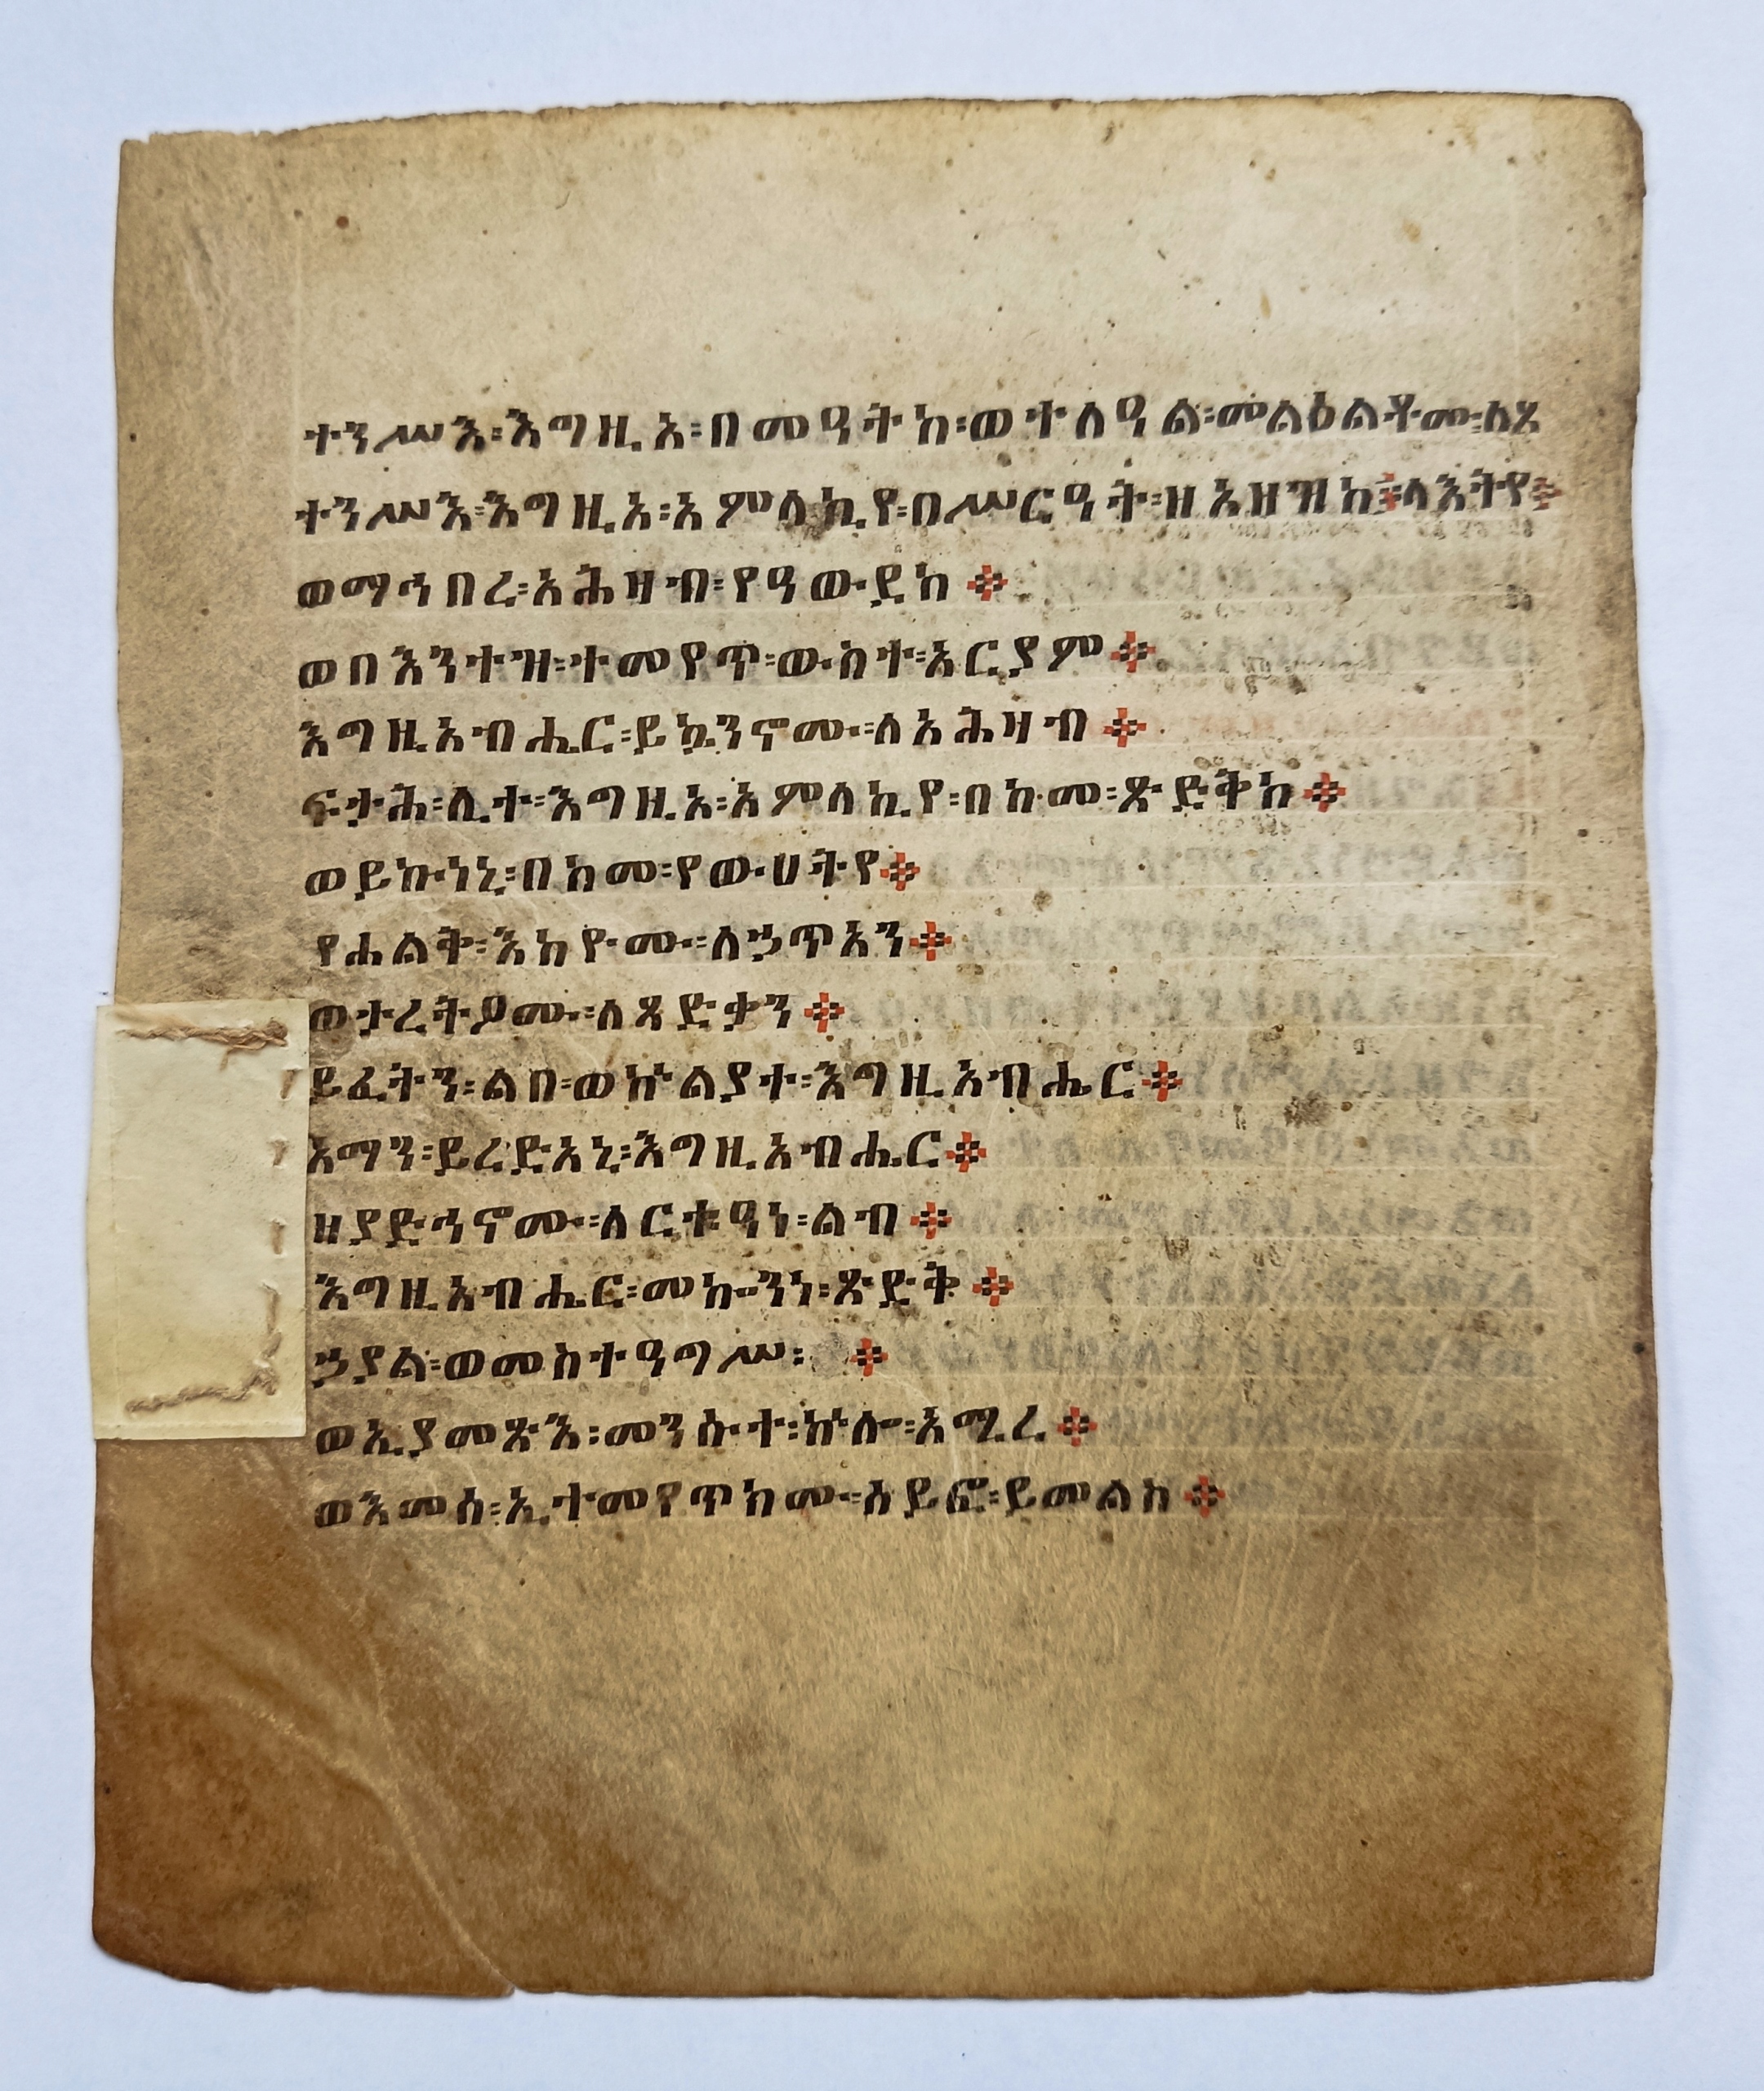 ተንሥእ፡እግዚአ፡በመዓትከ፡ወተለዓል፡መልዕልቶሙ፡ለጸ
ተንሥእ፡እግዚአ፡አምላኪየ፡በሥርዓት፡ዘአዘዝከ፨ላእትየ፨
ወማኅበረ፡አሕዛብ፡የዓውደከ፨
ወበእንተዝ፡ተመየጥ፡ውስተ፡አርያም፨
እግዚአብሔር፡ይኴንኖሙ፡ለአሕዛብ፨
ፍታሕ፡ሊተ፡እግዚአ፡አምላኪየ፡በከመ፡ጽድቅከ፨
ወይኩነኒ፡በከመ፡የውሀትየ፨
የሐልቅ፡እከዮሙ፡ለኃጥአን፨
ወታረትዖሙ፡ለጻድቃን፨
ይፈትን፡ልበ፡ወኵልያተ፡እግዚአብሔር፨
አማን፡ይረድአኒ፡እግዚአብሔር፨
ዘያድኅኖሙ፡ለርቱዓነ፡ልብ፨
እግዚአብሔር፡መኰንነ፡ጽድቅ፨
ኃያል፡ወመስተዓግሥ፡፨
ወኢያመጽእ፡መንሱተ፡ኵሎ፡አሚረ፨
ወእመሰ፡ኢተመየጥክሙ፡ሰይፎ፡ይመልኅ፨